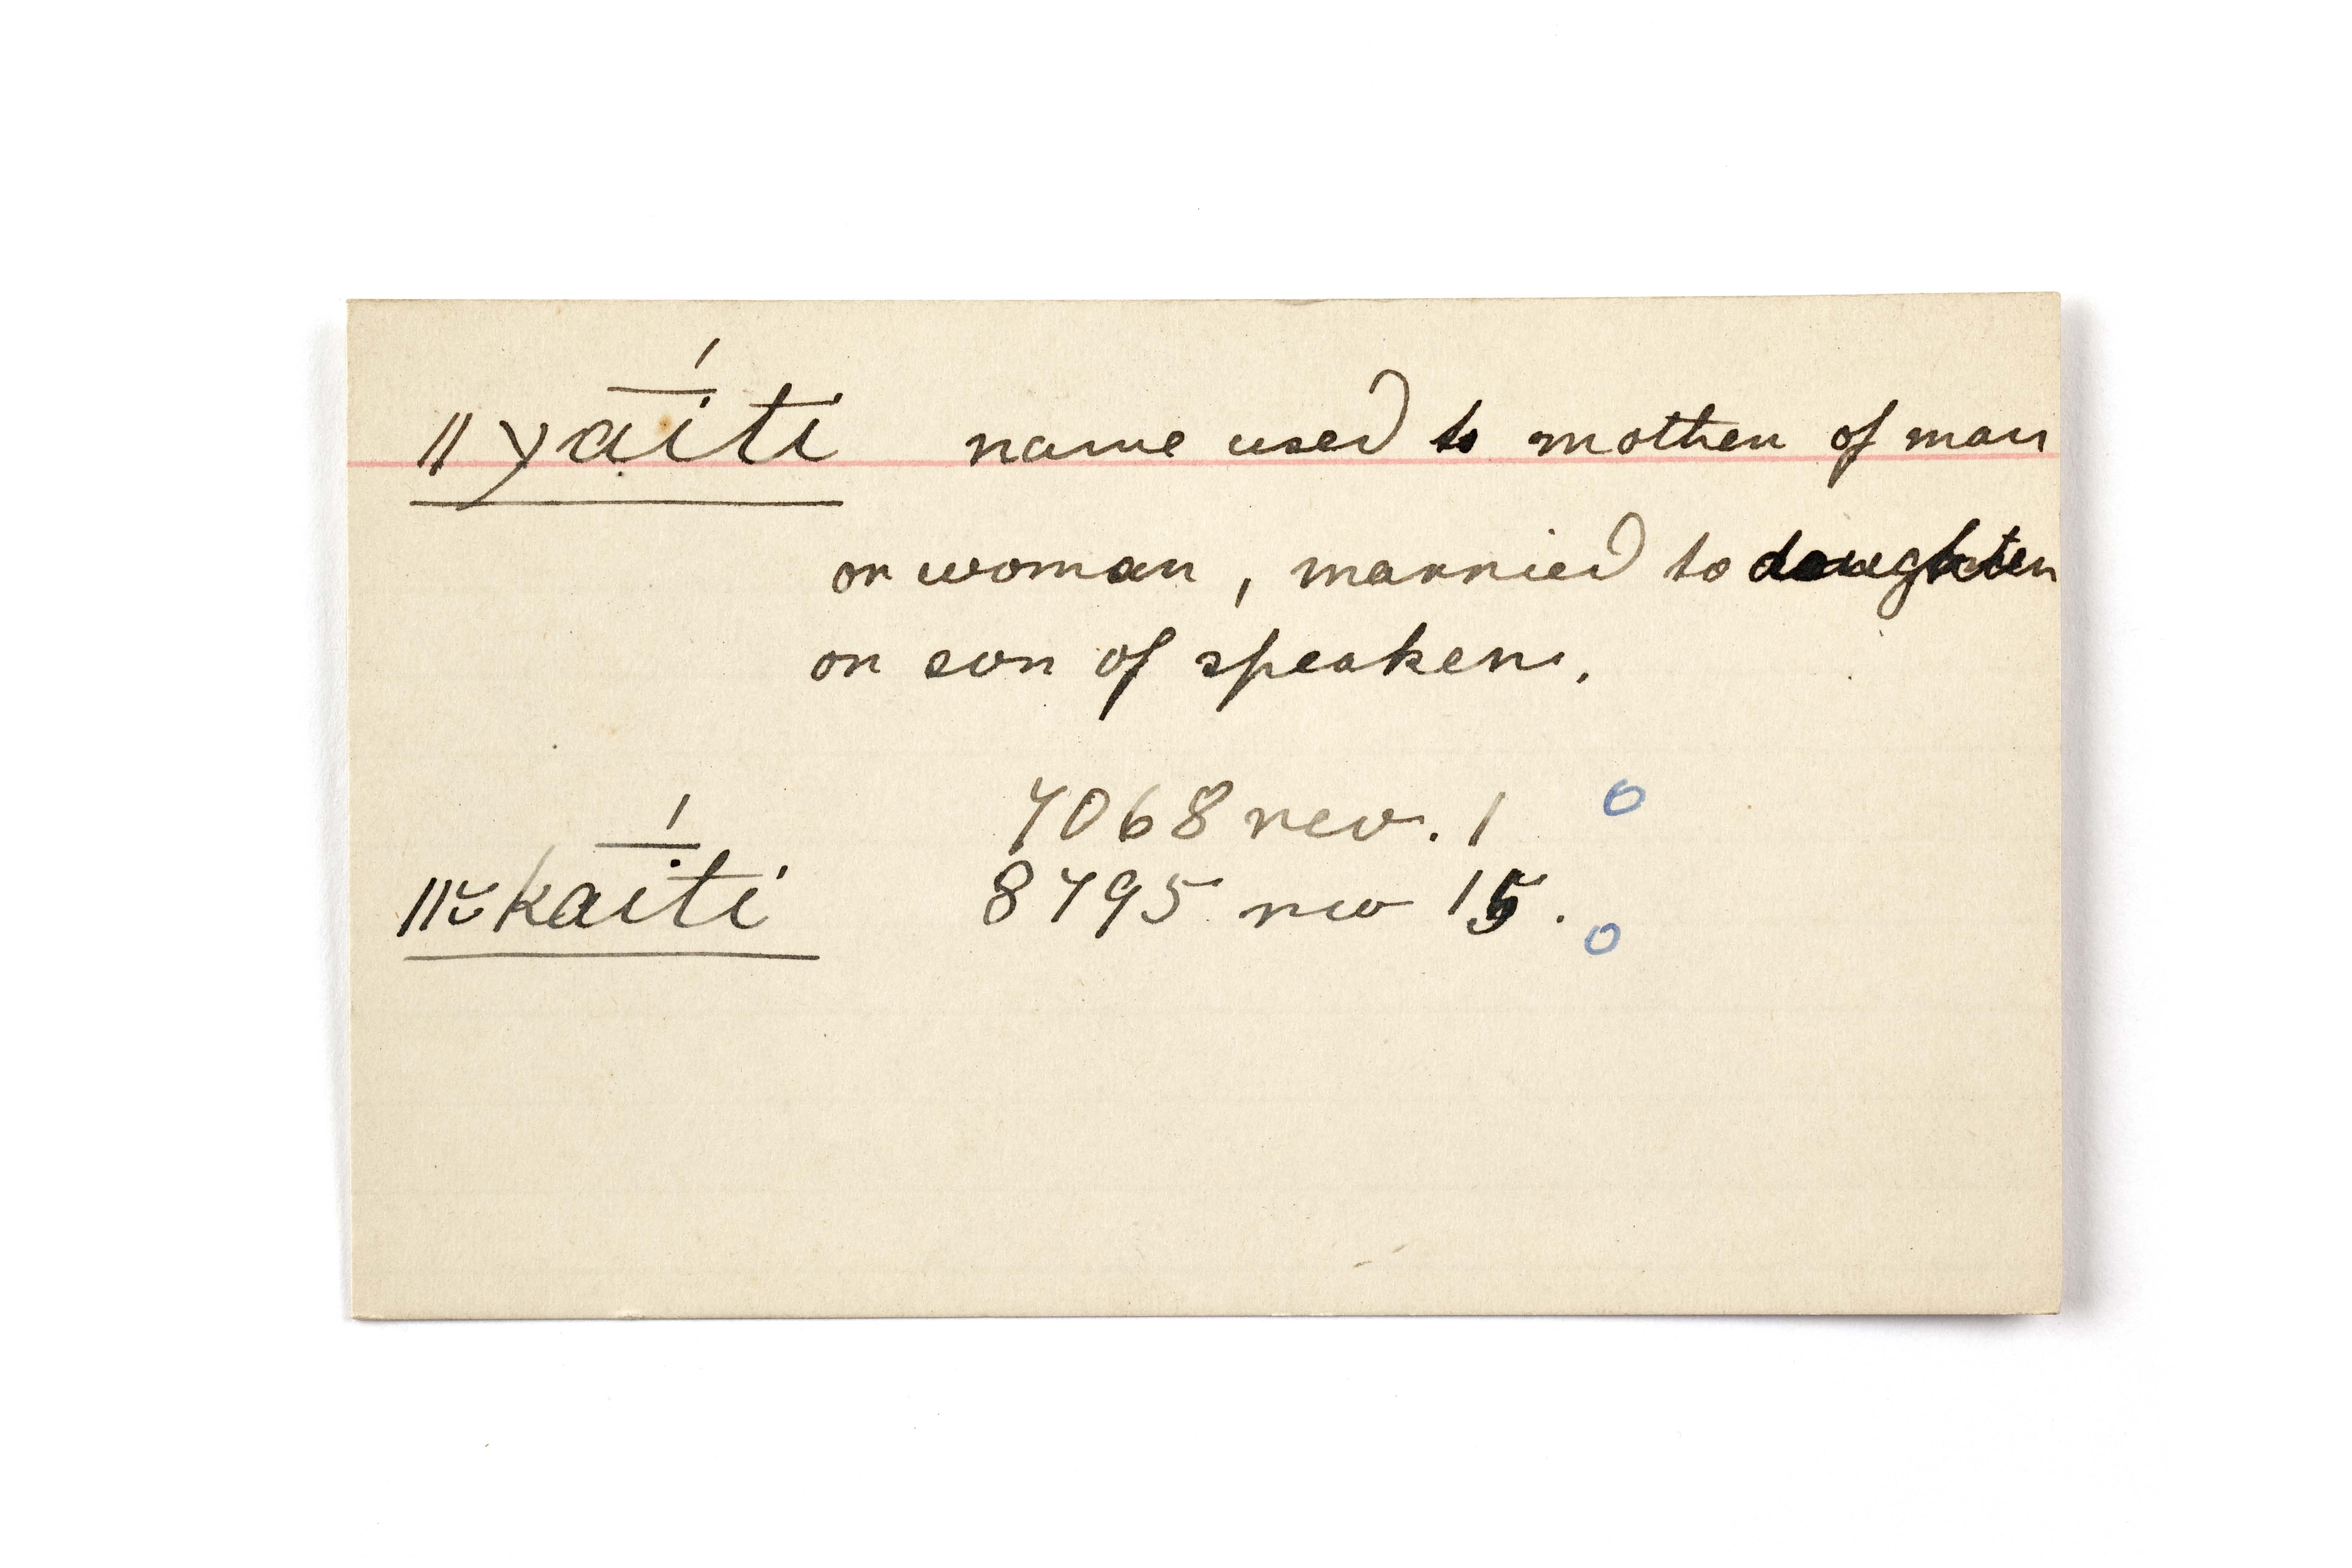 ǁχa̅́iti name used to mother of man
or woman, married to daughter
or son of speaker.
7068 rev. 1 o
ǁk̆a̅́iti 8795 rev 15. o